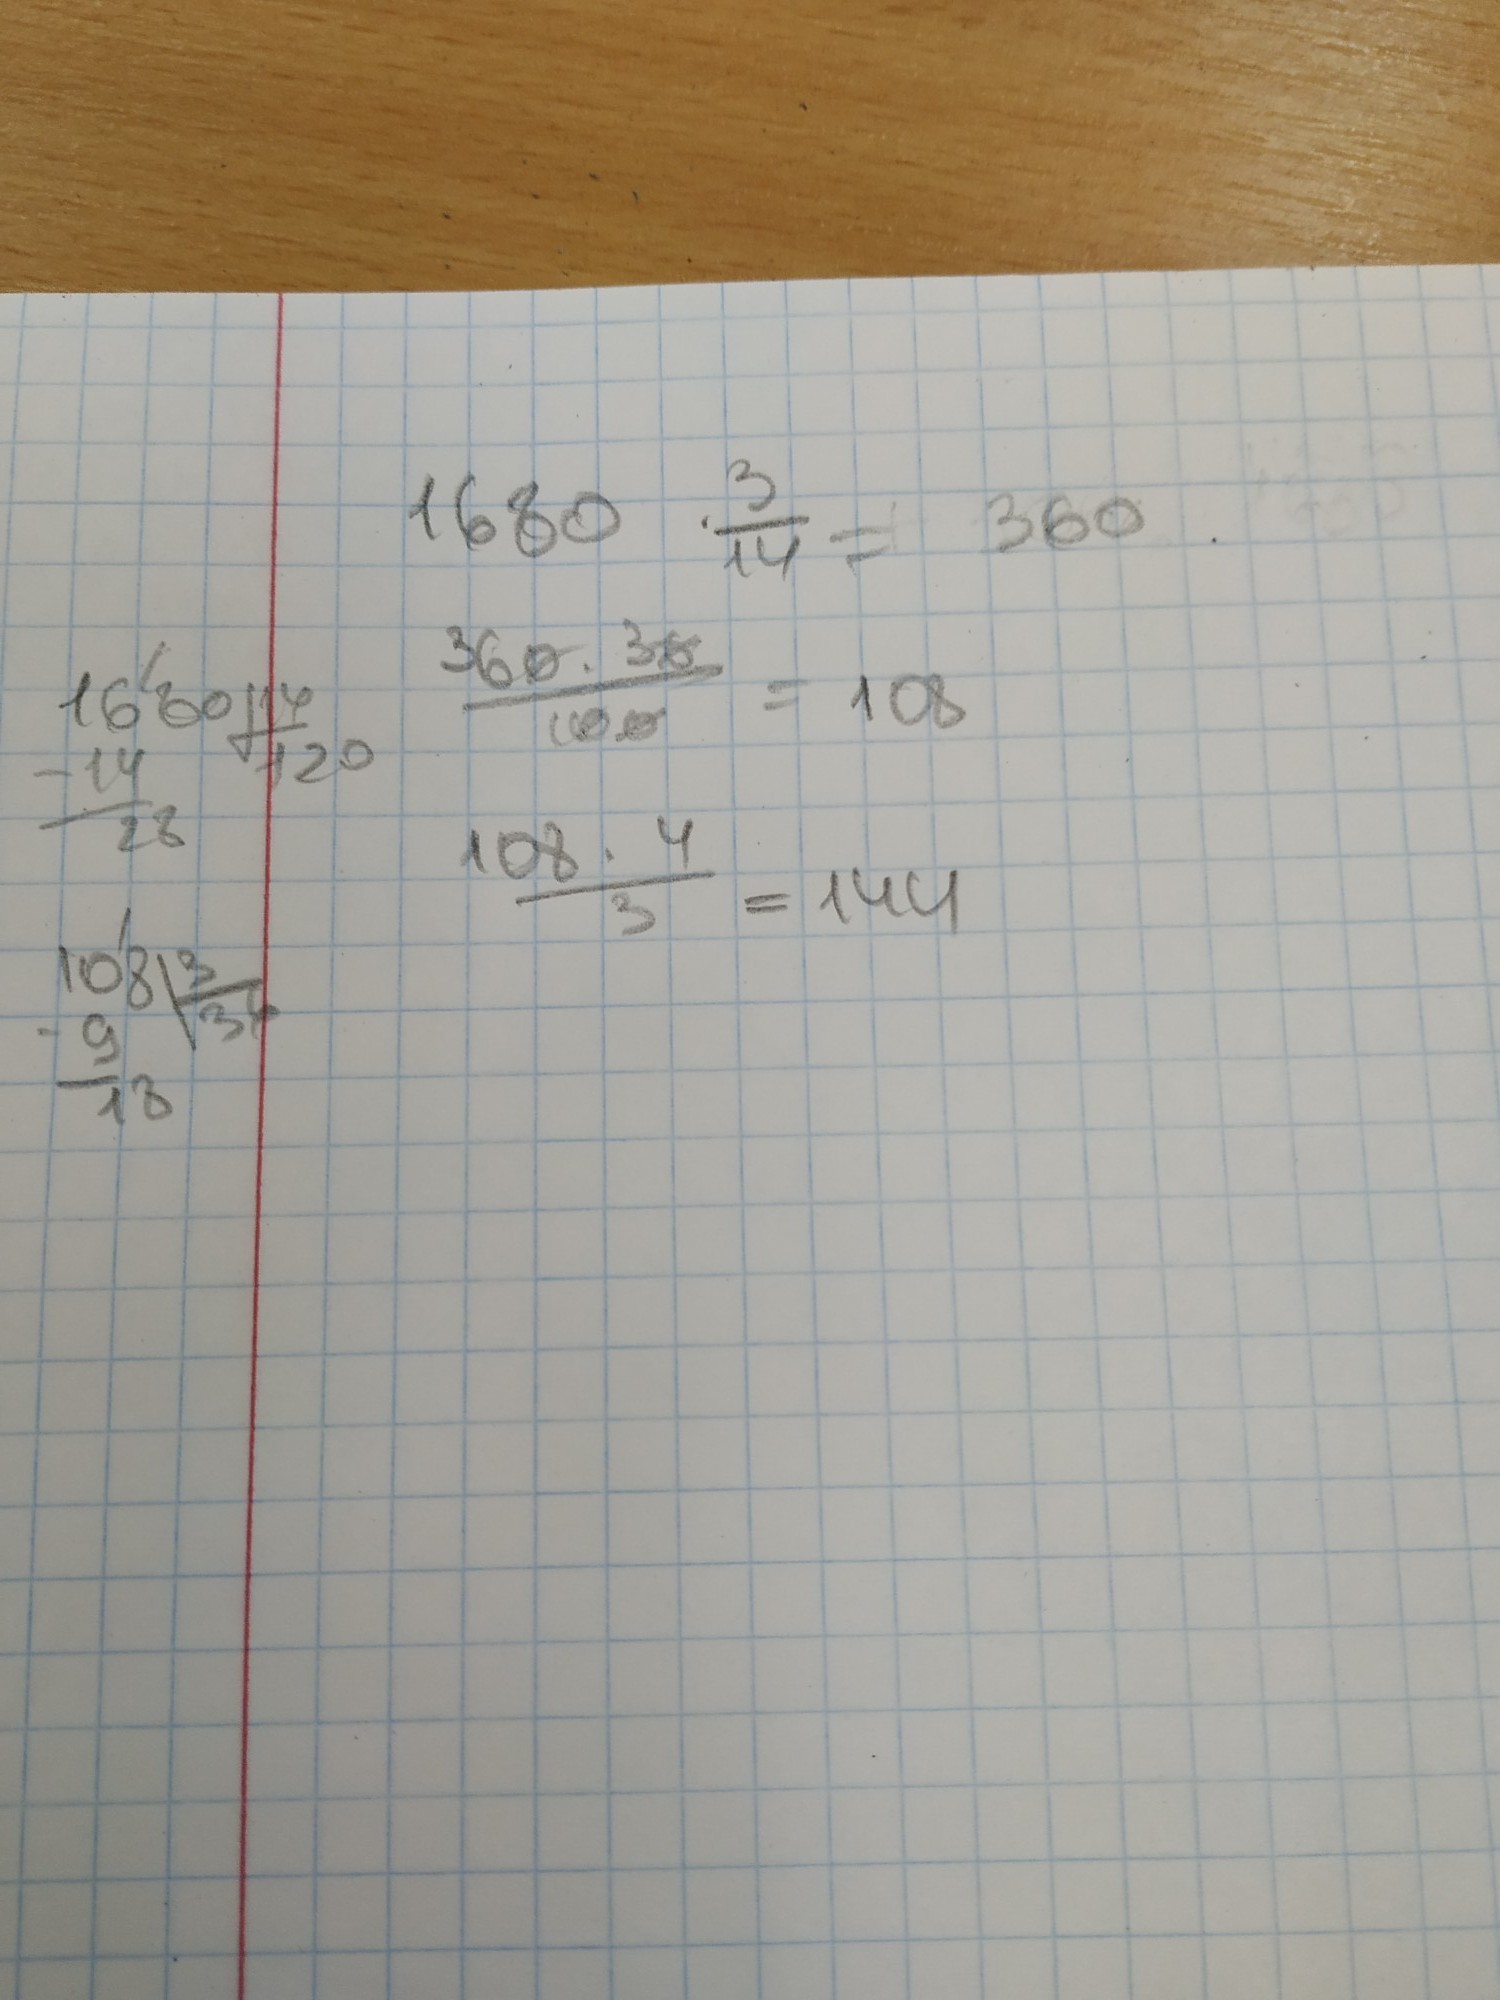 1680 · 3/14 = 360
360 · 30 / 100 = 108
108 · 4 / 3 = 144
1680 | 14
- 14 120
28
108 | 3
- 9 36
18